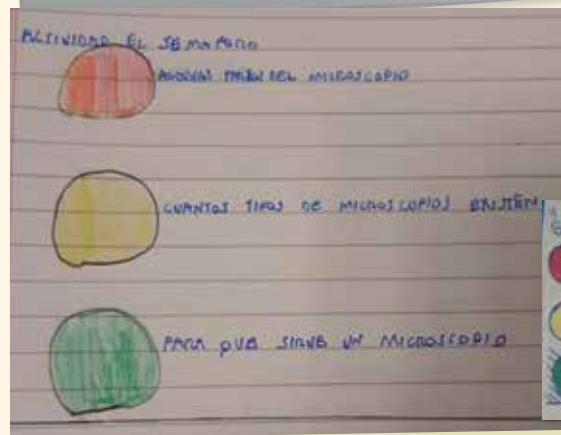 ACTIVIDAD EL SEMAFORO
ALGUNAS PARTES DEL MICROSCOPIO
CUANTOS TIPOS DE MICROSCOPIOS EXISTEN
PARA QUE SIRVE UN MICROSCOPIO